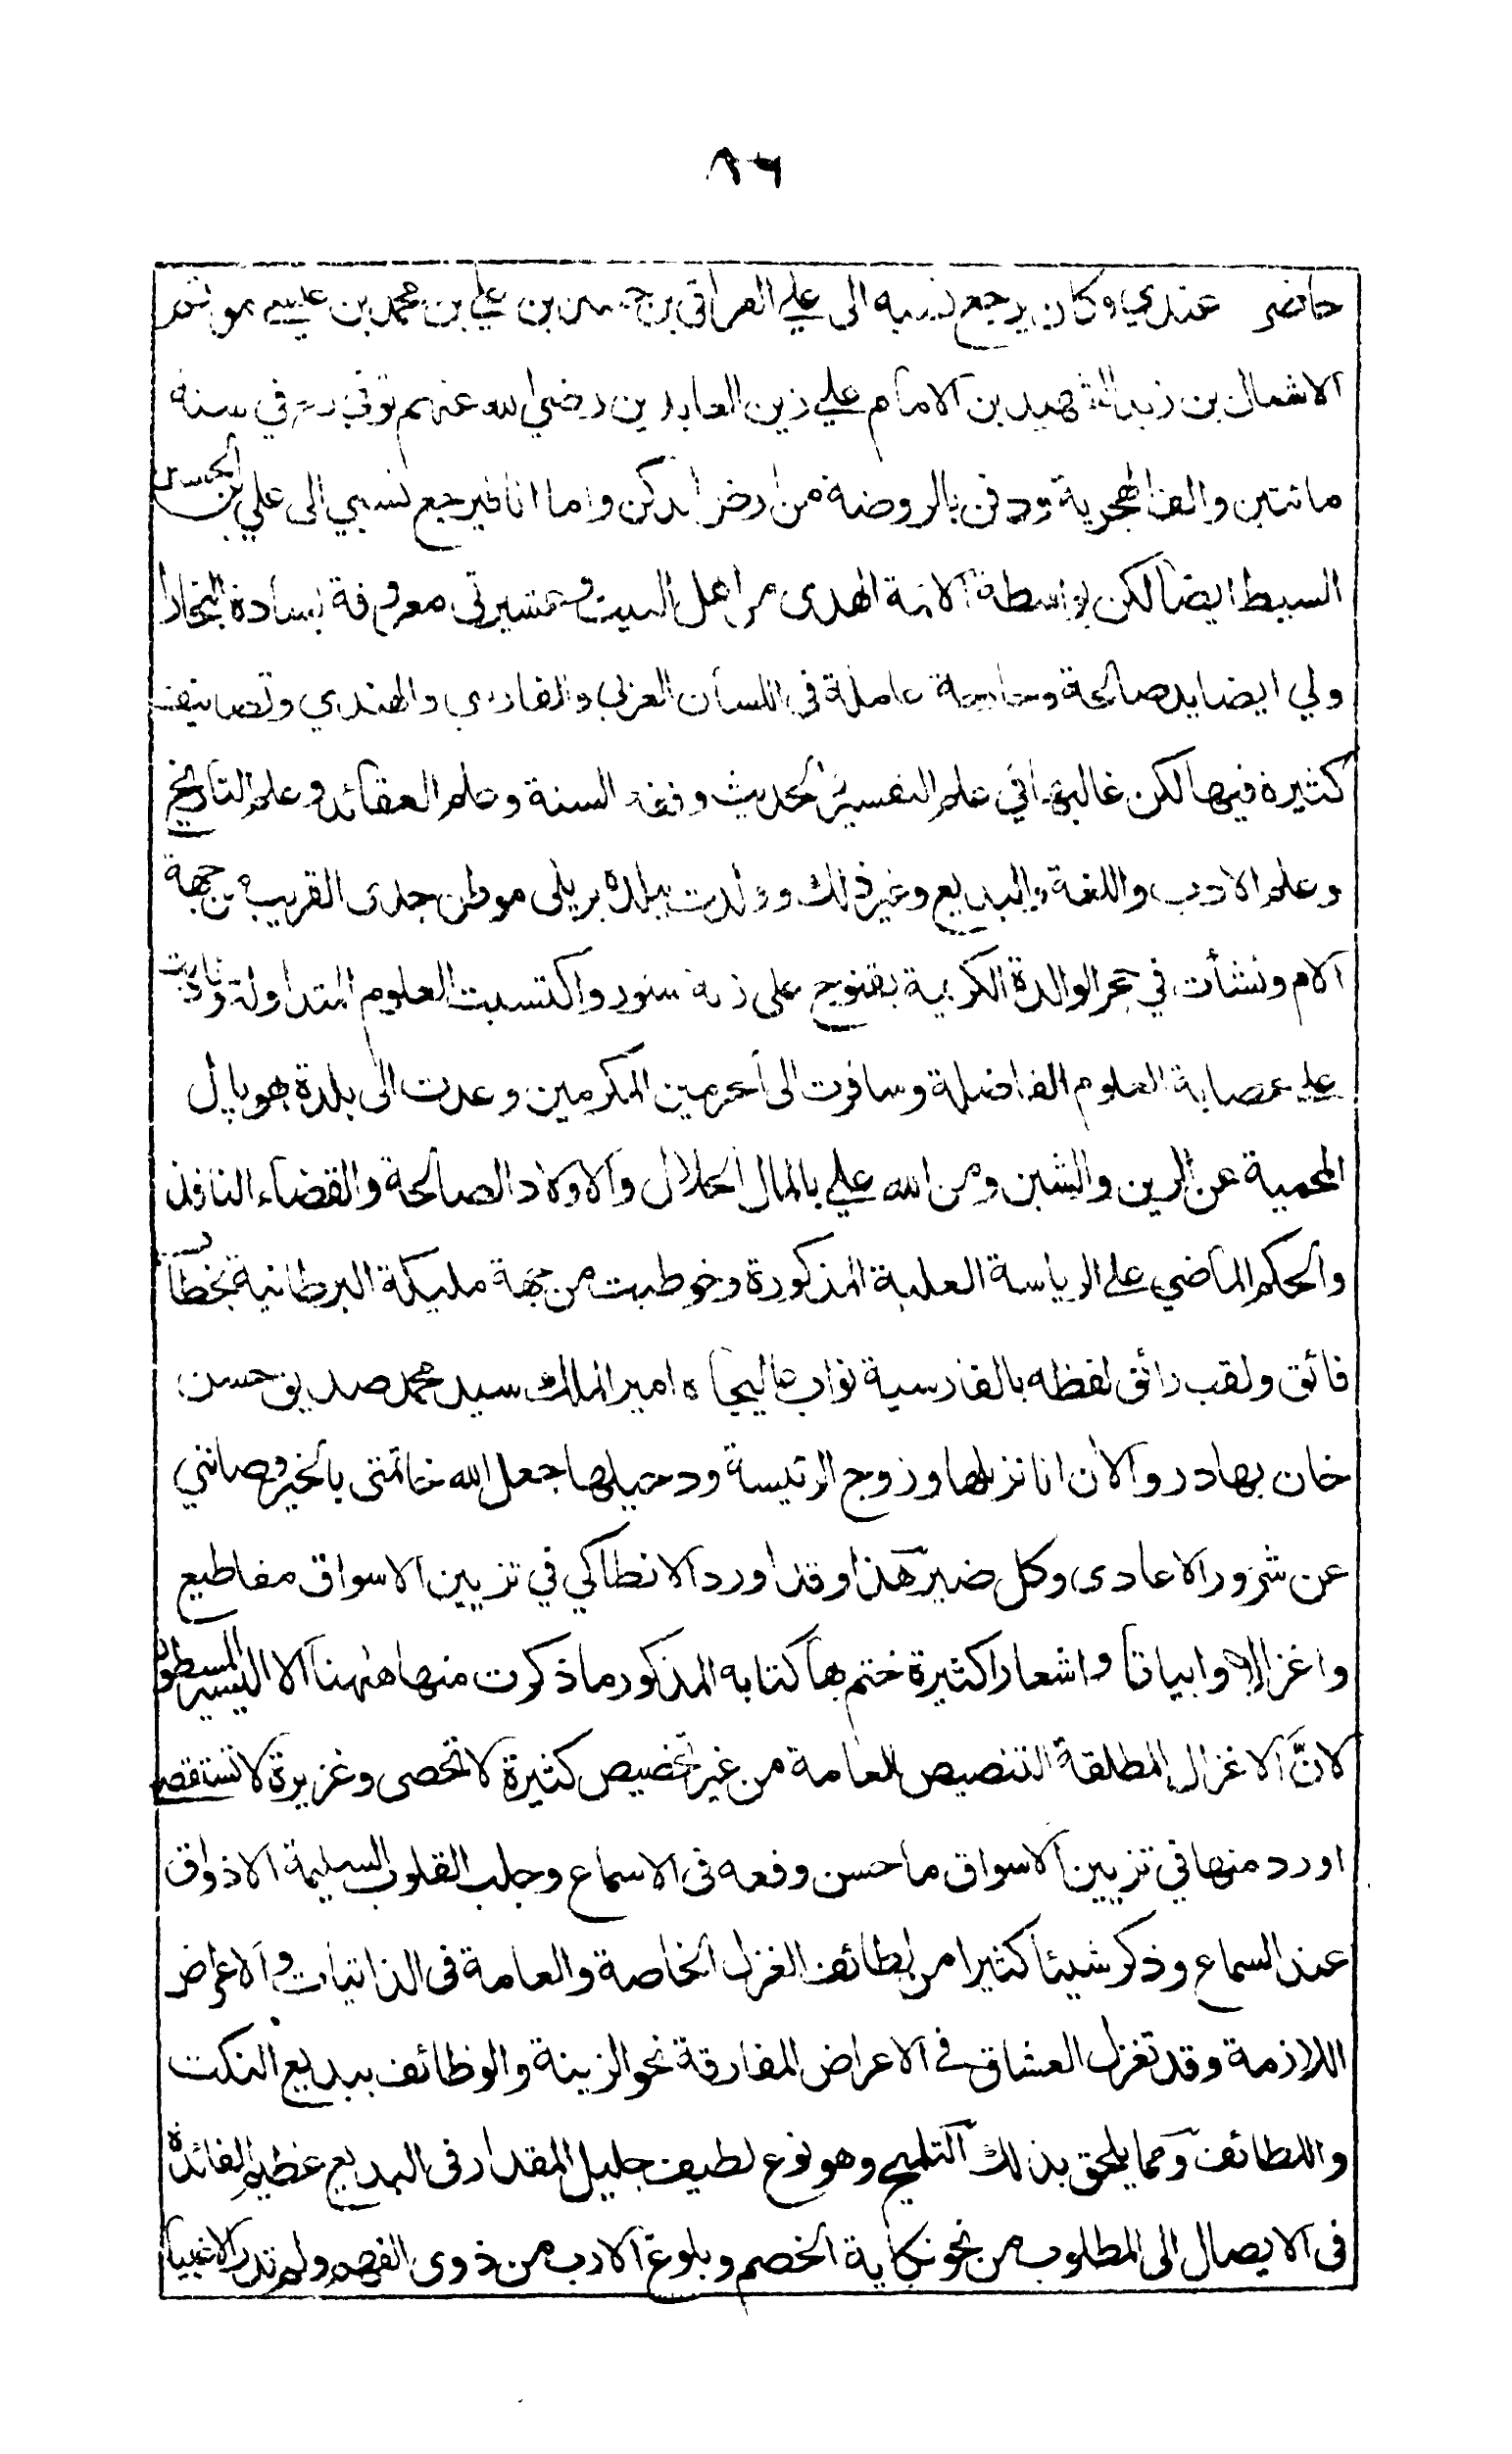 ٨٦
حاضر عندي وكان يرجع نسبه الى علي العراقي بن حسين بن علي بن محمد بن عيسى موتم
الاشبال بن زيد الشهيد بن الامام علي زين العابدين رضي الله عنهم توفي رح في سنة
مائتين والف الهجرية ودفن بالروضة من ارض الدكن واما انا فيرجع نسبي الى علي بن الحسين
السبط ايضا لكن بواسطة الائمة الهدى من اهل البيت وعشيرتي معروفة بسادة البخارا
ولي ايضا يد صالحة و عاملة في اللسان العربي والفارسي والهندي وتصانيف
كثيرة فيها لكن غالبها في علم التفسير والحديث وفقه السنة وعلم العقائد وعلم التاريخ
وعلم الادب واللغة والبديع وغير ذلك وولدت ببلدة بريلى موطن جدى القريب من جهة
الام ونشأت في حجر الوالدة الكريمة بقنوج على واكتسبت العلوم المتداولة
علي عصابة العلوم الفاضلة وسافرت الى الحرمين المكرمين وعدت الى بلدة بهوپال
المحمية عن الرين والشين ومن الله علي بالمال الحلال والاولاد الصالحة والقضاء النافذ
والحكم الماضي على الرياسة العلية المذكورة وخوطبت من جهة مليكة البرطانية بخطاب
فائق ولقب رائق لفظه بالفارسية نواب عاليجاه امير الملك سيد محمد صديق حسن
خان بهادر والان انا نزيلها وزوج الرئيسة ودخيلها جعل الله خاتمتى بالخير وصانني
عن شرور الاعادى وكل ضير هذا وقد اورد الانطاكي في تزيين الاسواق مقاطيع
واغزالا وابياتا واشعارا كثيرة ختم بها كتابه المذكور ما ذكرت منها ههنا الا اليسير المسطور
لانّ الاغزال المطلقة التنصيص للعامة من غير تخصيص كثيرة لا تحصى وغزيرة لا تستقصى
اورد منها في تزيين الاسواق ما حسن وقعه فى الاسماع وجلب القلوب السليمة الاذواق
عند السماع وذكر شيئا كثيرا من لطائف الغزل الخاصة والعامة فى الذاتيات والاعراض
اللازمة وقد تغزل العشاق في الاعراض المفارقة نحو الزينة والوظائف ببديع النكت
واللطائف ومما يلحق بذلك التلميح وهو نوع لطيف جليل المقدار فى البديع عظيم الفائدة
فى الايصال الى المطلوب من نحو نكاية الخصم وبلوغ الارب من ذوى الفهم ولم تدر الاغبيا